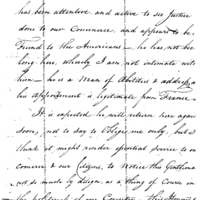 has been attentive and active to see Justice
done to our Commerce and appears to be
Friend to the Americans — he has not been
long here, wherefore I am not intimate with
him — he is a Man of Abilities & address
his Appointment is legitimate from France.
It is expected he will return here again
soon, not to say to oblige me only, but I
think it might render essential service to our
commerce & our Citizens, to notice this Gentleman
not so much by design, as a thing of Course in
the of our Country